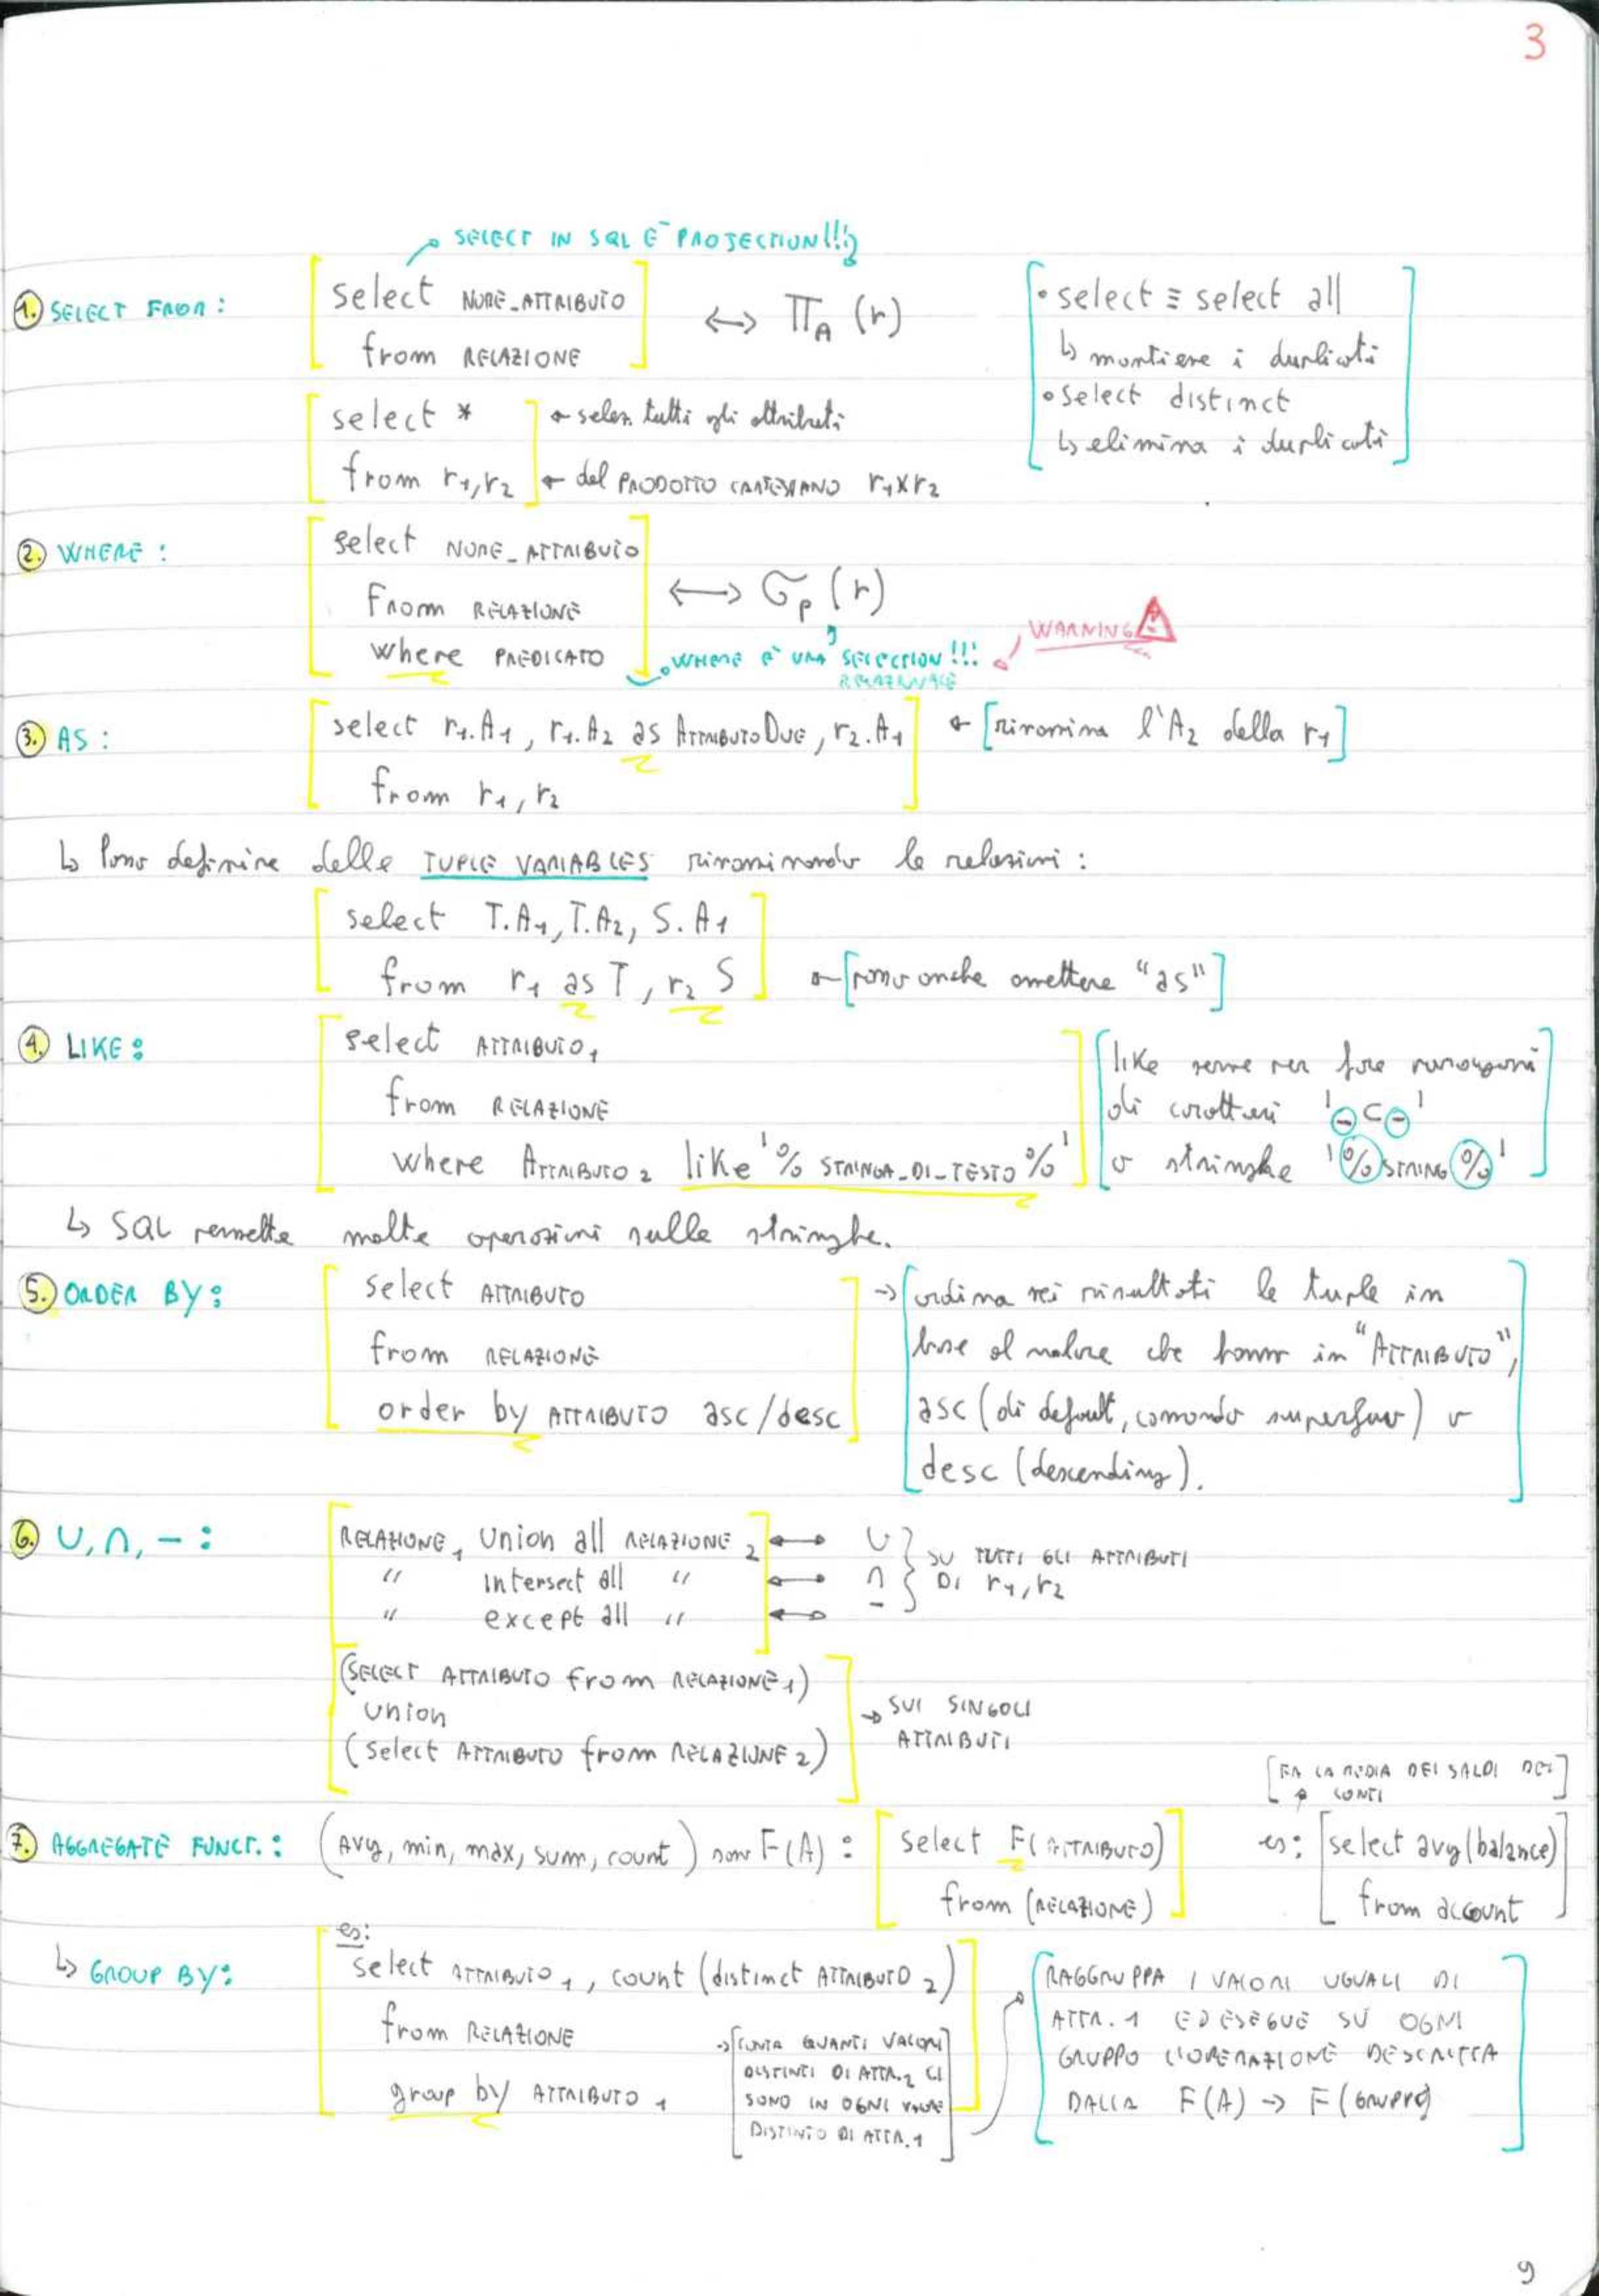 3
SELECT IN SQL È PROJECTION!!!
1. SELECT FROM:
select NOME_ATTRIBUTO
from RELAZIONE
↔ Π_A (r)
• select ≡ select all
↳ mantiene i duplicati
• select distinct
↳ elimina i duplicati
select * ← selez. tutti gli attributi
from r₁,r₂ ← del PRODOTTO CARTESIANO r₁×r₂
2. WHERE:
select NOME_ATTRIBUTO
From RELAZIONE
where PREDICATO
↔ σ_p (r)
WHERE È UNA SELECTION!!!
RELAZIONALE
WARNING !
3. AS:
select r₁.A₁, r₁.A₂ as ATTRIBUTODUE, r₂.A₁ ← [rinomina l'A₂ della r₁]
from r₁,r₂
↳ Posso definire delle TUPLE VARIABLES rinominando le relazioni:
select T.A₁, T.A₂, S.A₁
from r₁ as T, r₂ S ← [posso anche omettere "as"]
4. LIKE:
select ATTRIBUTO₁
from RELAZIONE
where ATTRIBUTO₂ like '% STRINGA_DI_TESTO %'
like serve per fare paragoni
di caratteri '_C_'
o stringhe '%STRING%'
↳ SQL permette molte operazioni sulle stringhe.
5. ORDER BY:
select ATTRIBUTO
from RELAZIONE
order by ATTRIBUTO asc/desc
→ ordina nei risultati le tuple in
base al valore che hanno in "ATTRIBUTO",
asc (di default, comando superfluo) o
desc (descending).
6. ∪, ∩, -:
RELAZIONE₁ Union all RELAZIONE₂ ↔ ∪
" intersect all " ↔ ∩
" except all " ↔ -
SU TUTTI GLI ATTRIBUTI
DI r₁,r₂
(SELECT ATTRIBUTO from RELAZIONE₁)
union
(select ATTRIBUTO from RELAZIONE₂)
→ SUI SINGOLI
ATTRIBUTI
[FA LA MEDIA DEI SALDI DEI
CONTI]
7. AGGREGATE FUNCT.: (avg, min, max, sum, count) sono F(A):
select F(ATTRIBUTO)
from (RELAZIONE)
es: select avg(balance)
from account
↳ GROUP BY:
es:
select ATTRIBUTO₁, count (distinct ATTRIBUTO₂)
from RELAZIONE
group by ATTRIBUTO₁
→ CONTA QUANTI VALORI
DISTINTI DI ATTR.₂ CI
SONO IN OGNI VALORE
DISTINTO DI ATTR.₁
RAGGRUPPA I VALORI UGUALI DI
ATTR. 1 ED ESEGUE SU OGNI
GRUPPO L'OPERAZIONE DESCRITTA
DALLA F(A) → F(GRUPPO)
9